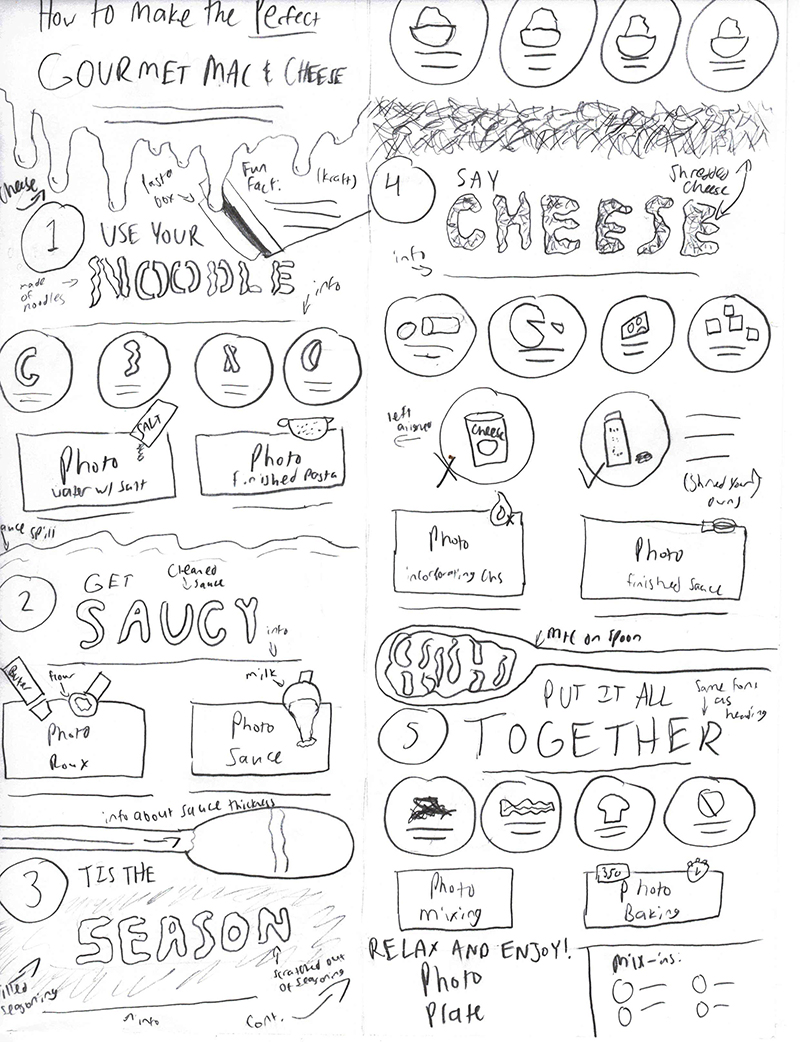 How to make the Perfect
GOURMET MAC & CHEESE
Cheese
Pasta
box
Fun
Fact.
(kraft)
1
USE YOUR
NOODLE
made
of
noodles
info
SALT
Photo
water w/ salt
Photo
finished pasta
sauce spill
2
GET
SAUCY
sauce
info
Butter
flour
milk
Photo
Roux
Photo
Sauce
info about sauce thickness
3
TIS THE
SEASON
seasoning
scratched out
of seasoning
info
Cont.
4
SAY
CHEESE
Shredded
cheese
info
left
aligned
Cheese
(Shred your
own)
Photo
incorporating chs
Photo
finished sauce
M+C on spoon
5
PUT IT ALL
TOGETHER
Same font
as
heading
Photo
mixing
350
Photo
Baking
RELAX AND ENJOY!
Photo
Plate
Mix-ins: